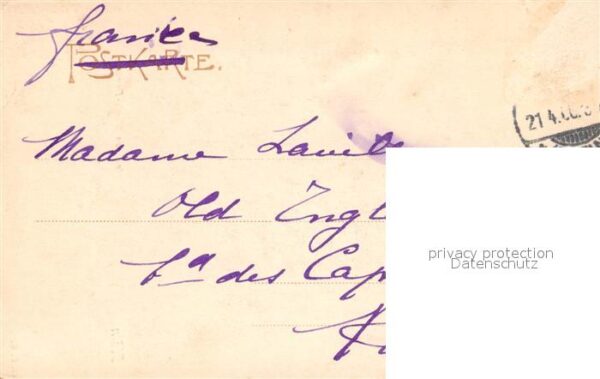 france
POSTKARTE.
21 4.
Madame
Old Engl
Bd des Cap
privacy protection
Datenschutz